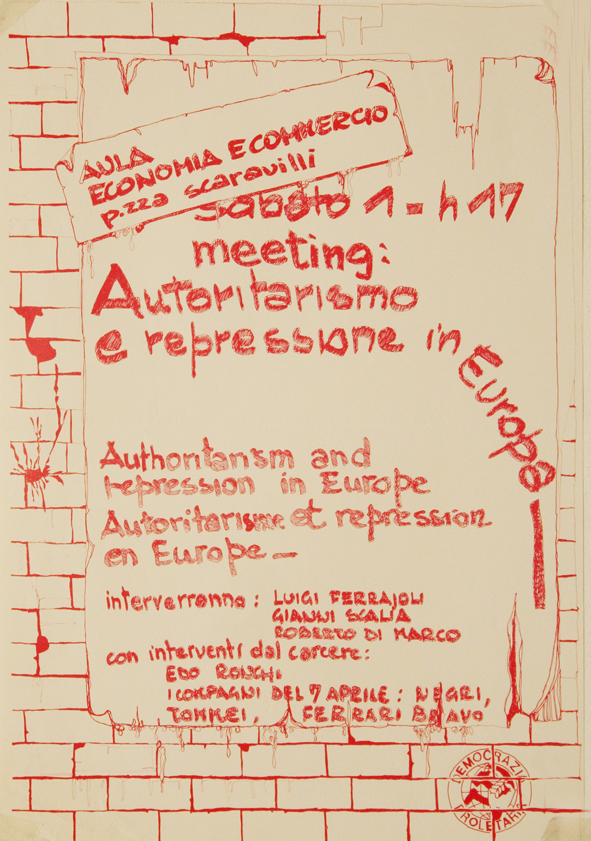 AULA
ECONOMIA E COMMERCIO
p.zza scaravilli
sabato 1 - h 17
meeting:
Autoritarismo
e repressione in
Europa
Authoritarism and
repression in Europe
Autoritarisme et repression
en Europe -
interverranno: LUIGI FERRAJOLI
GIANNI SCALIA
ROBERTO DI MARCO
con interventi dal carcere:
EDO RONCHI
I COMPAGNI DEL 7 APRILE: NEGRI,
TOMMEI, FERRARI BRAVO
DEMOCRAZIA
PROLETARIA